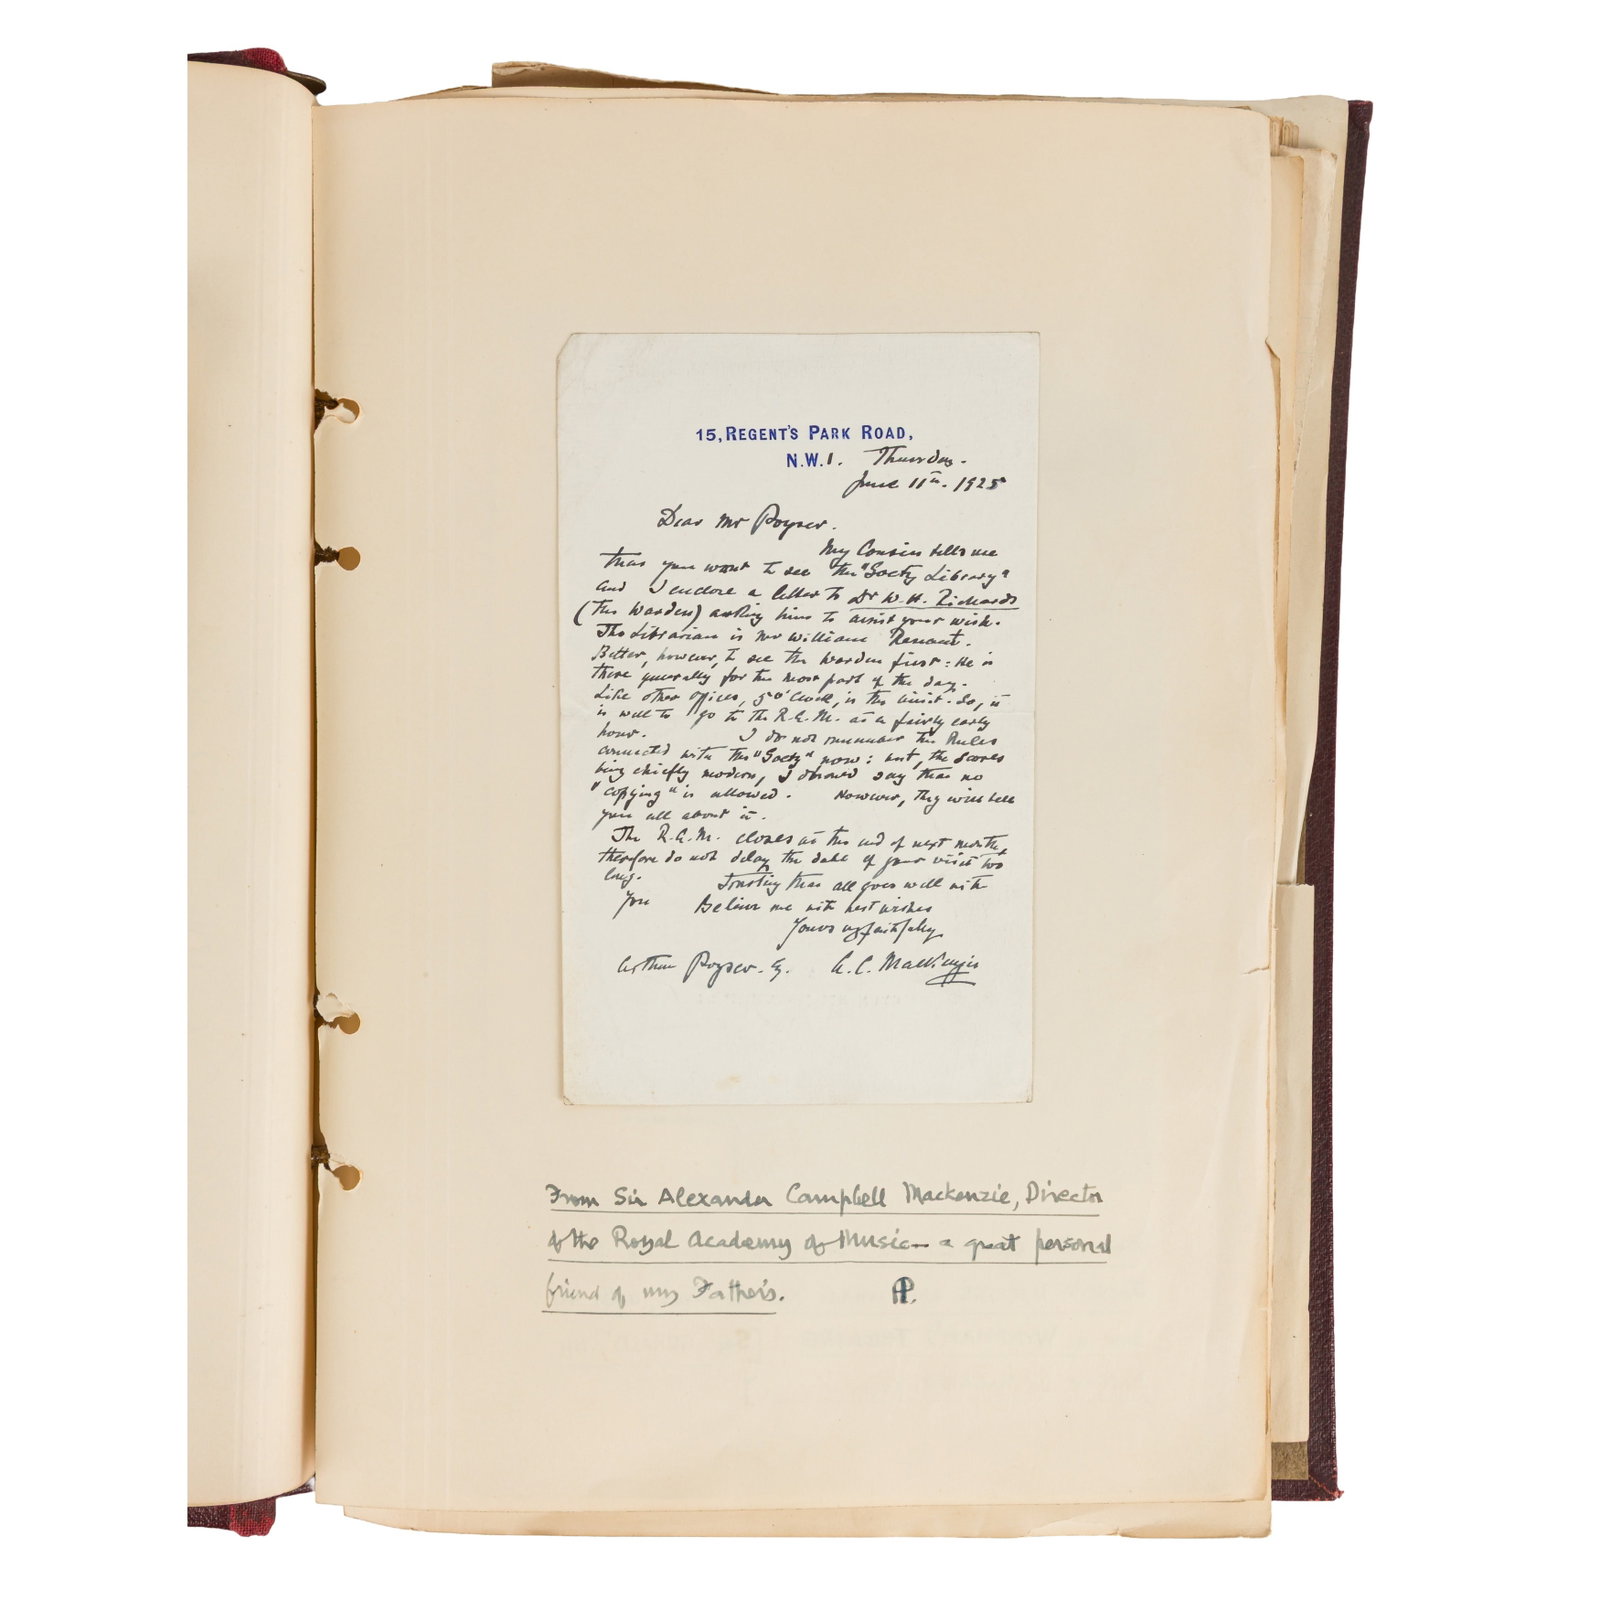 15, REGENT'S PARK ROAD,
N.W.1. Thursday.
June 11th. 1925
Dear Mr Poyser.
My Cousin tells me
that you want to see the "Socty Library"
and I enclose a letter to Dr W. H. Richards
(the Warden) asking him to assist your wish.
The Librarian is Mr William
Better, however, to see the Warden first: He is
there generally for the most part of the day.
Like other offices, 5 o'clock, is the limit. So, it
is well to go to the R.A.M. at a fairly early
hour. I do not remember the Rules
connected with the "Socty" now: but, the Scores
being chiefly modern, I should say that no
"copying" is allowed. However, they will tell
you all about it.
The R.A.M. closes at the end of next month,
therefore do not delay the date of your visit too
long. Trusting that all goes well with
you Believe me with best wishes
Yours faithfully
Arthur Poyser. Esq. A. C. Mackenzie
From Sir Alexander Campbell Mackenzie, Director
of the Royal Academy of Music – a great personal
friend of my Father's. AP.